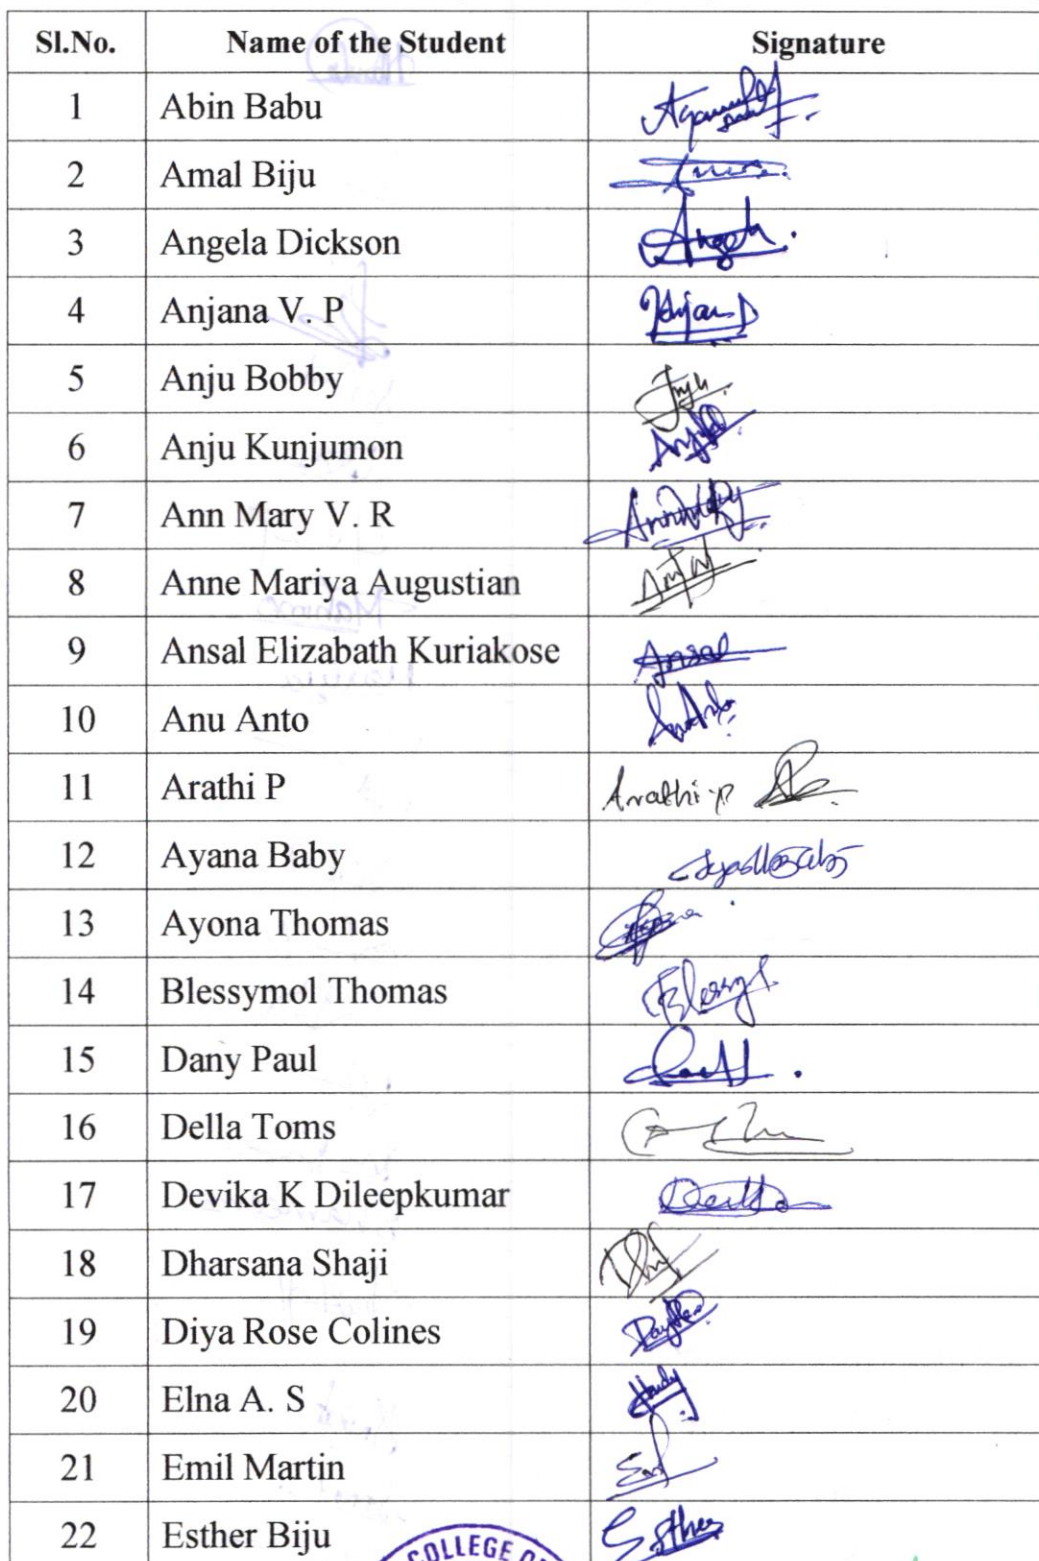 Sl.No. Name of the Student Signature
1 Abin Babu
2 Amal Biju
3 Angela Dickson Angela
4 Anjana V. P
5 Anju Bobby Anju
6 Anju Kunjumon
7 Ann Mary V. R
8 Anne Mariya Augustian
9 Ansal Elizabath Kuriakose Ansal
10 Anu Anto
11 Arathi P Arathi.P
12 Ayana Baby
13 Ayona Thomas
14 Blessymol Thomas Blessy
15 Dany Paul
16 Della Toms
17 Devika K Dileepkumar
18 Dharsana Shaji
19 Diya Rose Colines
20 Elna A. S
21 Emil Martin
22 Esther Biju Esther
COLLEGE